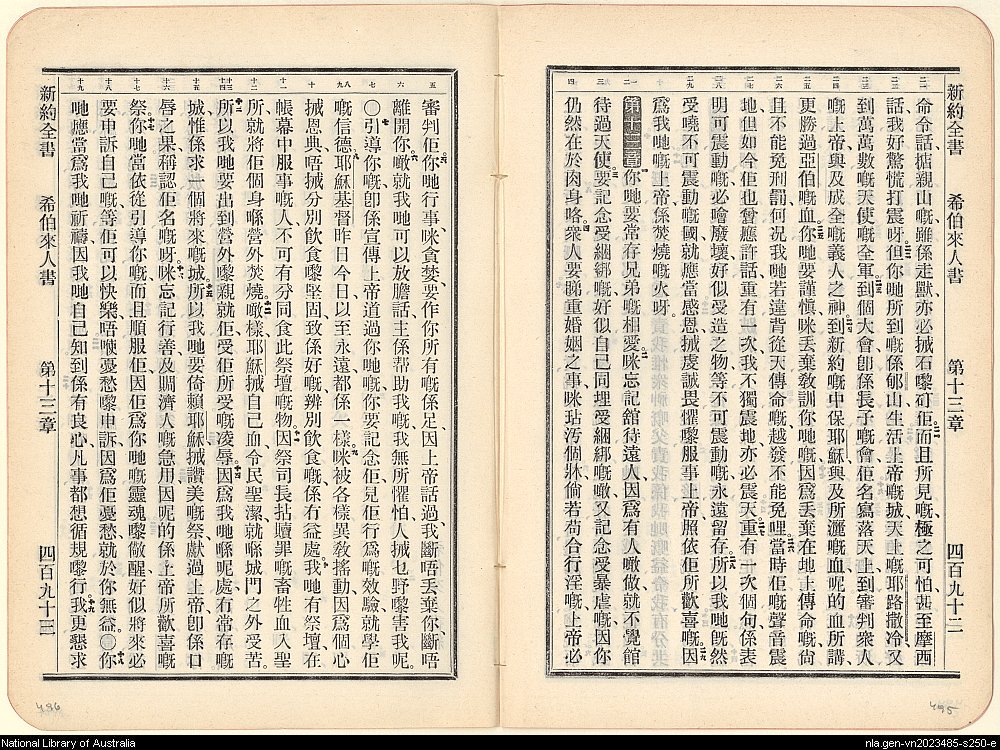 新約全書 希伯來人書 第十三章 四百九十二
命令話掂親山嘅、雖係走獸亦必掝石嚟矴佢、而且所見嘅極之可怕、甚至摩西
話、我好驚慌打震呀、但你哋所到嘅係郇山、生活上帝嘅城、天上嘅耶路撒冷、又
到萬萬數嘅天使嘅全軍、到個大會卽係長子嘅會、佢名寫落天上、到審判衆人
嘅上帝、與及成全嘅義人之神、到新約嘅中保耶穌、與及所灑嘅血、呢的血所講
更勝過亞伯嘅血、你哋要謹愼咪丢棄敎訓你哋嘅、因爲丢棄在地上傳命嘅、尙
且不能免刑罰、何况我哋若違背從天傳命嘅、越發不能免哩、當時佢嘅聲音震
地、但如今佢也曾應許話、重有一次、我不獨震地、亦必震天、重有一次個句、係表
明可震動嘅必噲廢壞、好似受造之物、等不可震動嘅永遠留存、所以我哋旣然
受嘵不可震動嘅國、就應當感恩、掝虔誠畏懼嚟服事上帝、照依佢所歡喜嘅、因
爲我哋嘅上帝係焚燒嘅火呀。
第十三章 你哋要常存兄弟嘅相愛、咪忘記舘待遠人、因爲有人噉做、就不覺舘
待過天使、要記念受綑綁嘅、好似自己同埋受綑綁嘅噉、又記念受暴虐嘅、因你
仍然在於肉身咯、衆人要睇重婚姻之事、咪玷汚個牀、倘若苟合行淫嘅、上帝必
審判佢、你哋行事、咪貪婪、要作你所有嘅係足、因上帝話過、我斷唔丢棄你、斷唔
離開你、噉就我哋可以放膽話、主係幫助我嘅、我無所懼怕、人掝乜野嚟害我呢。
〇引導你嘅、卽係宣傳上帝道過你哋嘅、你要記念佢、見佢行爲嘅效驗、就學佢
嘅信德、耶穌基督昨日今日以至永遠、都係一樣、咪被各樣異敎搖動、因爲個心
掝恩典、唔掝分別飲食嚟堅固致係好嘅、辨別飲食嘅係有益處、我哋有祭壇、在
帳幕中服事嘅人、不可有分同食此祭壇嘅物、因祭司長拈贖罪嘅畜牲血入聖
所、就將佢個身喺營外焚燒、噉樣耶穌掝自己血令民聖潔、就喺城門之外受苦、
所以我哋要出到營外嚟親就佢、受佢所受嘅凌辱、因爲我哋喺呢處冇常存嘅
城、惟係求一個將來嘅城、所以我哋要倚賴耶穌、掝讚美嘅祭獻過上帝、卽係口
唇之果稱認佢名嘅呀、咪忘記行善、及賙濟人嘅急用、因呢的係上帝所歡喜嘅
祭、你哋當依從引導你嘅、而且順服佢、因佢爲你哋嘅靈魂嚟儆醒、好似將來必
要申訴自己嘅、等佢可以快樂唔喺憂愁嚟申訴、因爲佢憂愁就於你無益〇你
哋應當爲我哋祈禱、因我哋自己知到係有良心、凡事都想循規嚟行、我更懇求
新約全書 希伯來人書 第十三章 四百九十三
496
495
National Library of Australia
nla.gen-vn2023485-s250-e